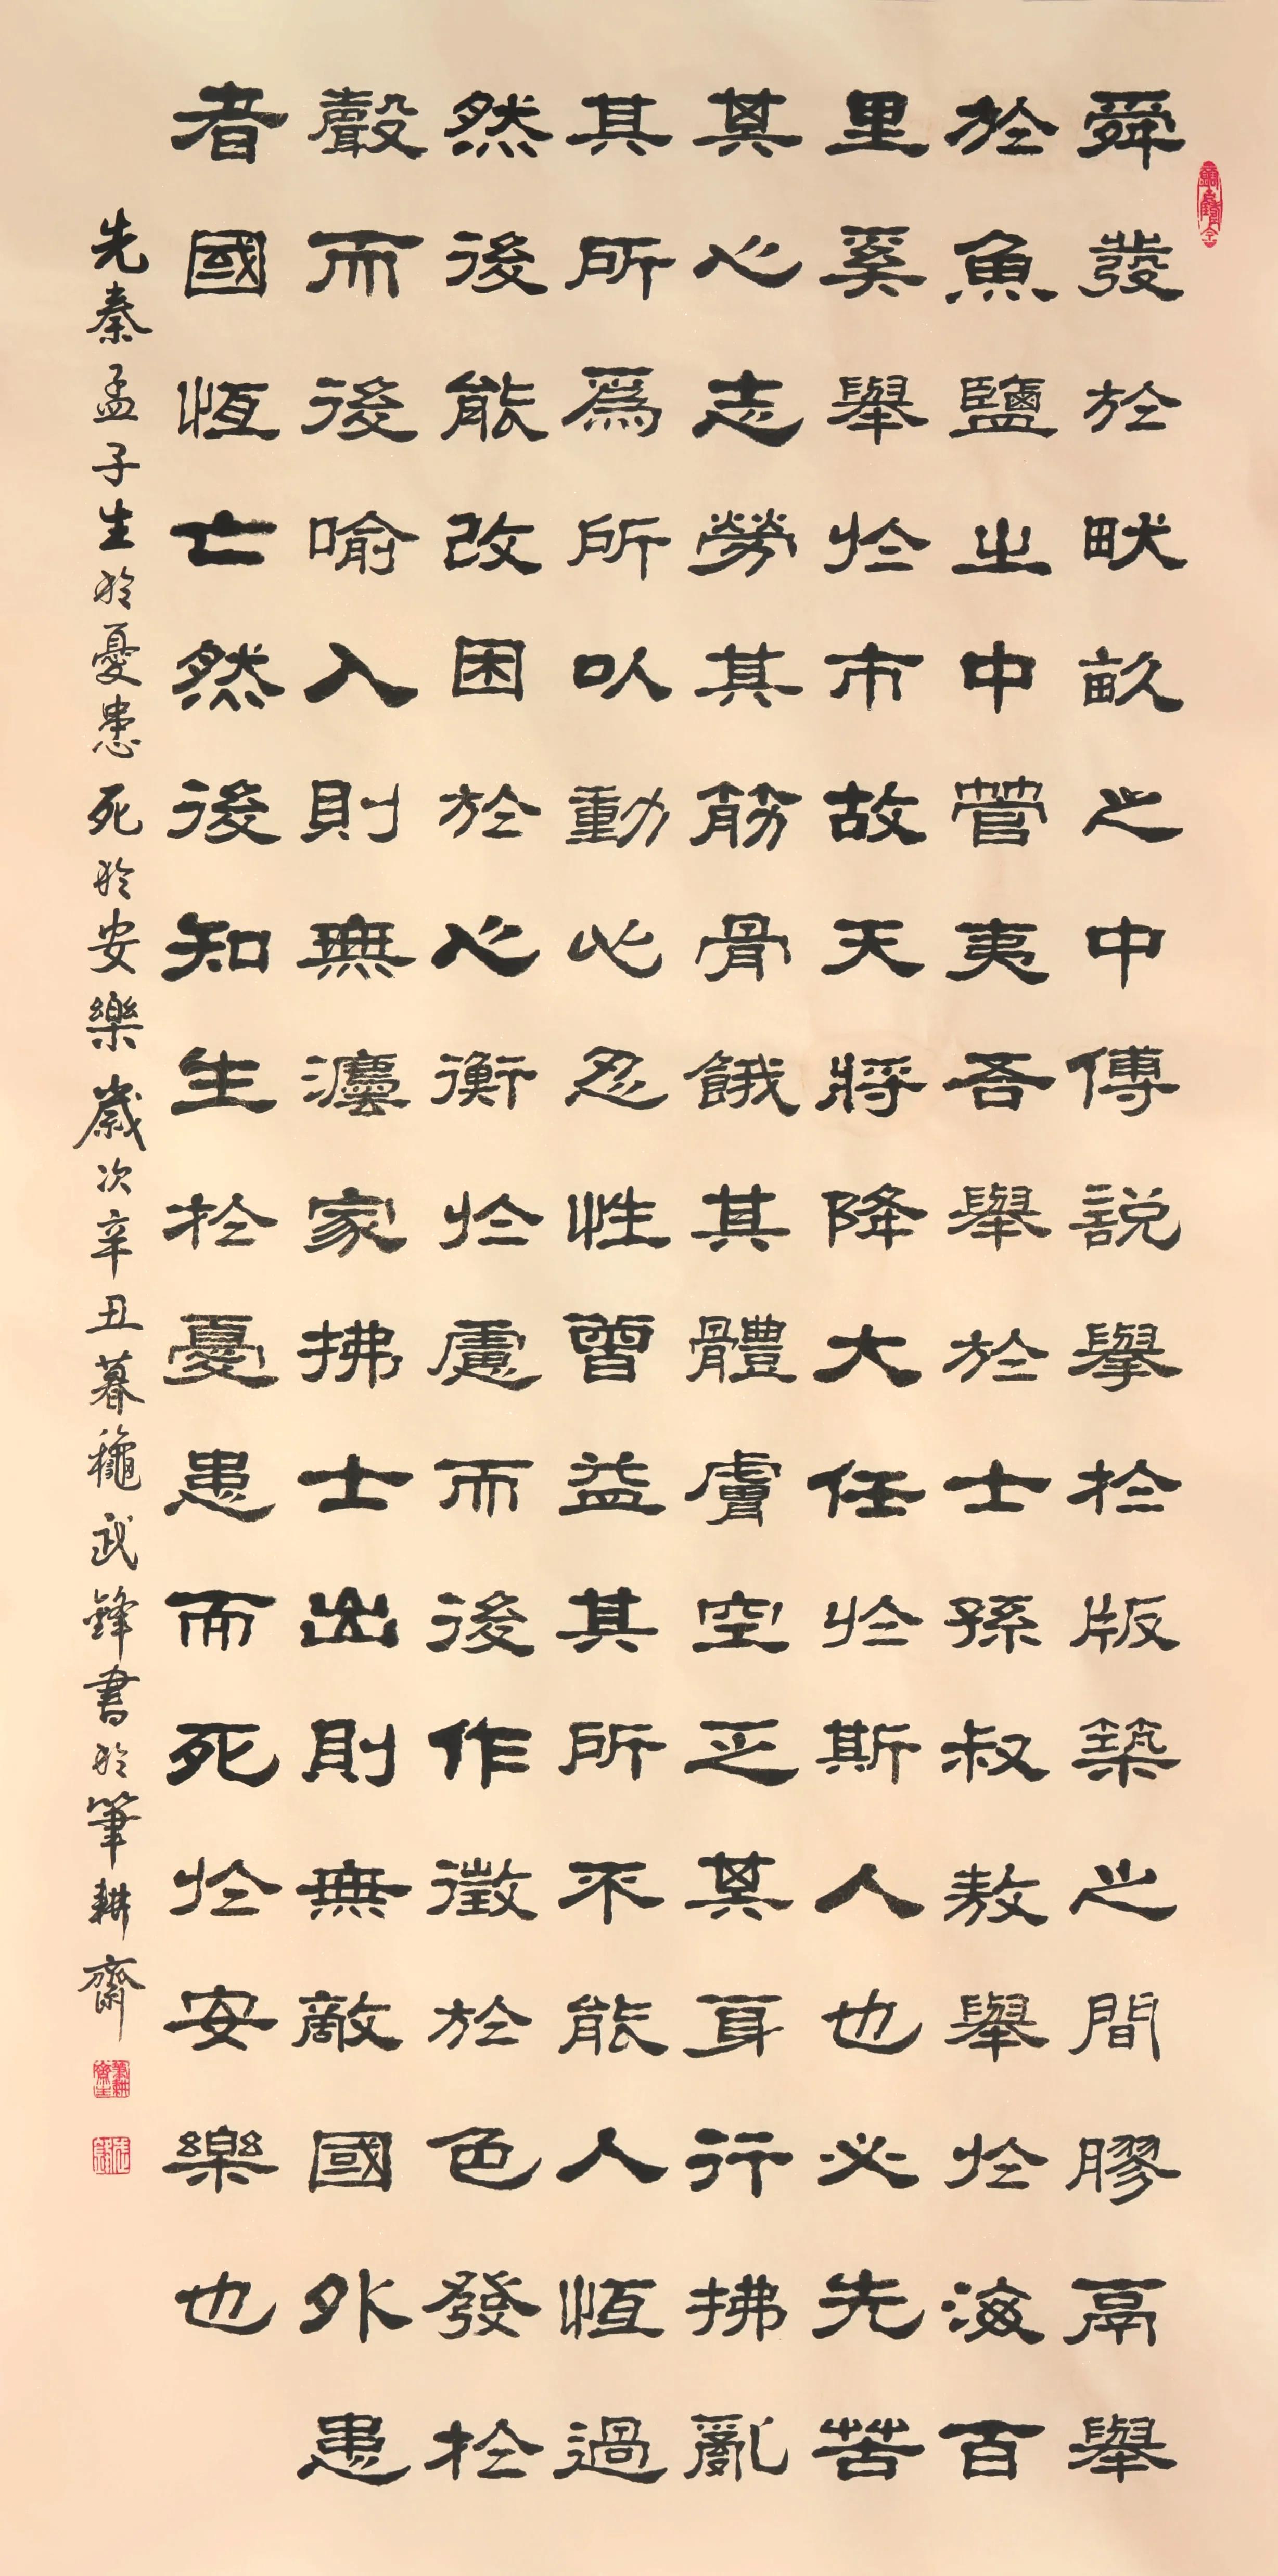 舜發於畎畝之中傅說舉於版築之間膠鬲舉
於魚鹽之中管夷吾舉於士孫叔敖舉於海百
里奚舉於市故天將降大任於斯人也必先苦
其心志勞其筋骨餓其體膚空乏其身行拂亂
其所為所以動心忍性曾益其所不能人恆過
然後能改困於心衡於慮而後作徵於色發於
聲而後喻入則無法家拂士出則無敵國外患
者國恆亡然後知生於憂患而死於安樂也
先秦孟子生於憂患死於安樂歲次辛丑暮龝武鋒書於筆耕齋